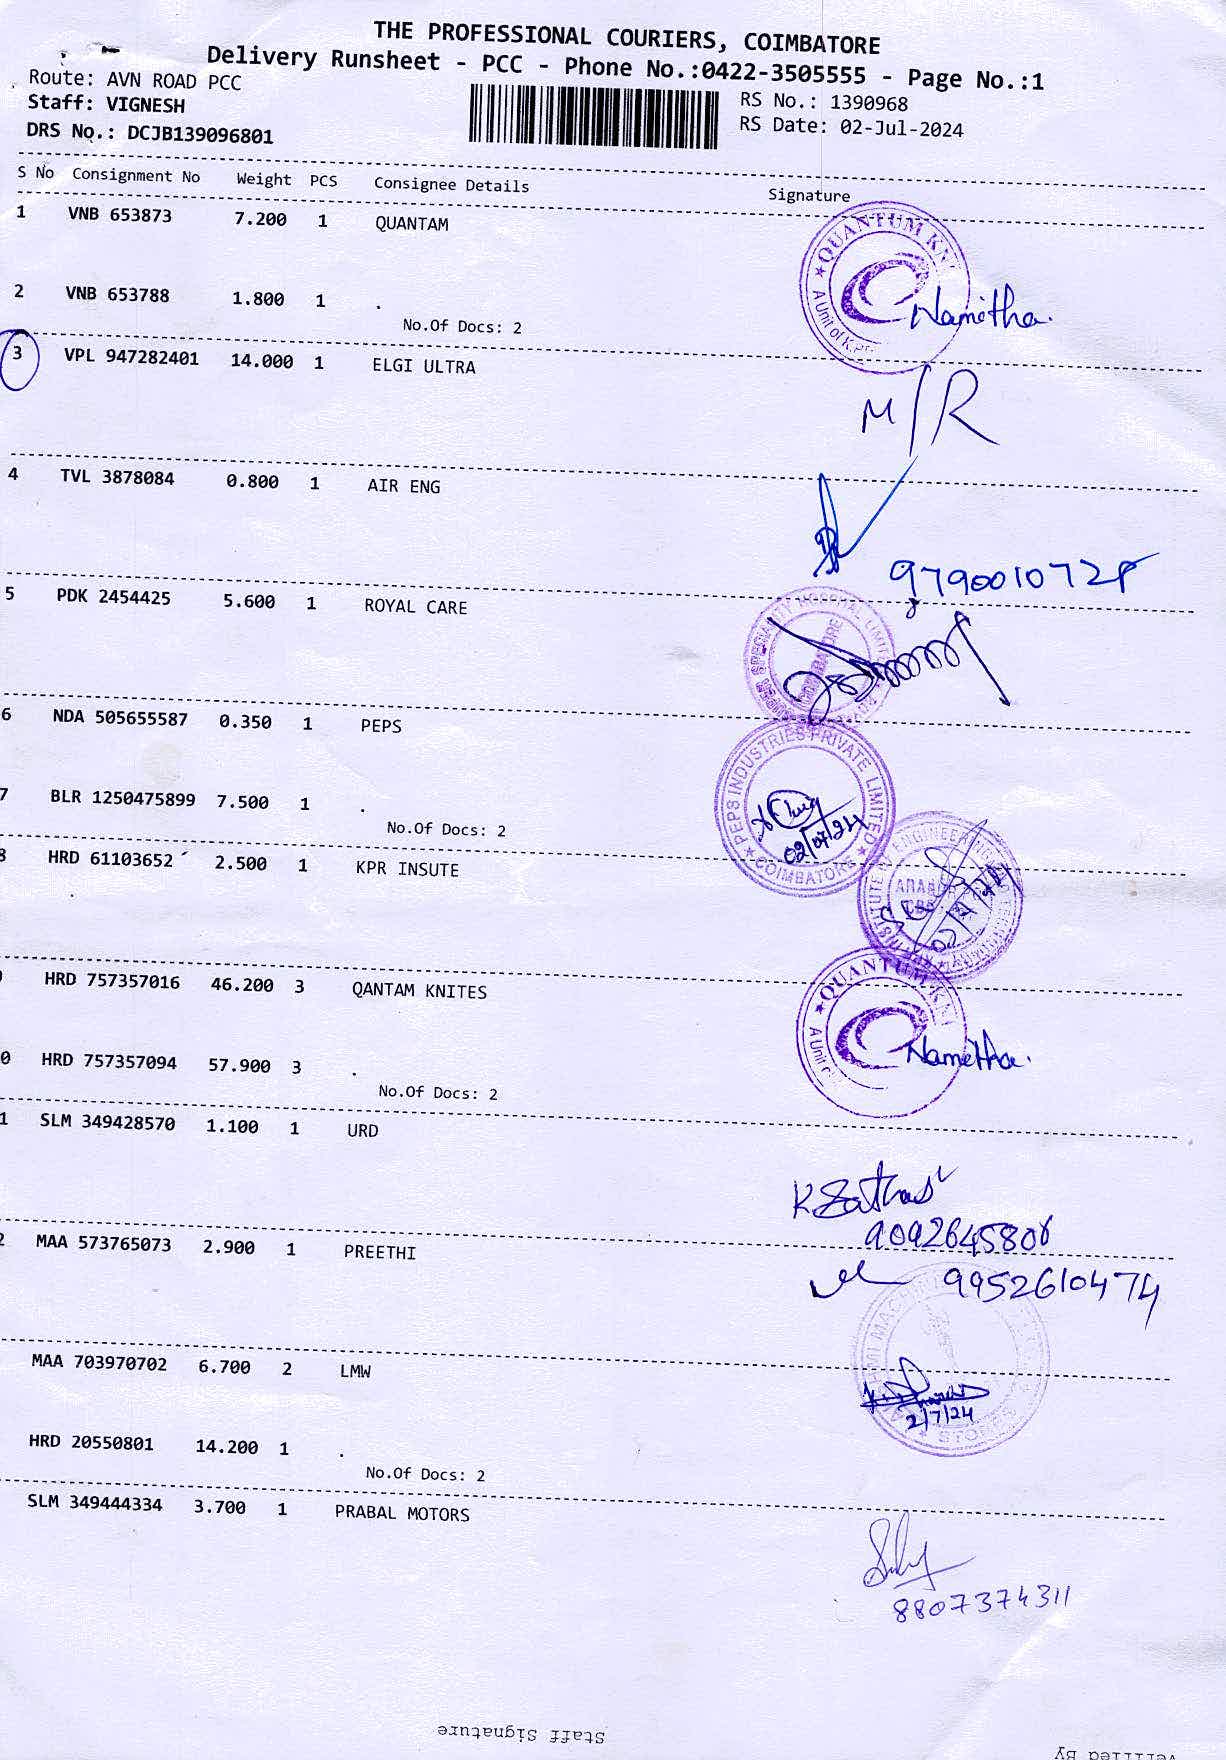 THE PROFESSIONAL COURIERS, COIMBATORE
Delivery Runsheet - PCC - Phone No.:0422-3505555 - Page No.:1
Route: AVN ROAD PCC
Staff: VIGNESH
DRS No.: DCJB139096801
RS No.: 1390968
RS Date: 02-Jul-2024
S No Consignment No Weight PCS Consignee Details Signature
1 VNB 653873 7.200 1 QUANTAM
QUANTUM KNI
A Unit of KPR
Namitha.
2 VNB 653788 1.800 1 .
No.Of Docs: 2
3 VPL 947282401 14.000 1 ELGI ULTRA
M/R
4 TVL 3878084 0.800 1 AIR ENG
5 PDK 2454425 5.600 1 ROYAL CARE
SPECIALITY HOSPITAL LIMITED
COIMBATORE
6 NDA 505655587 0.350 1 PEPS
PEPS INDUSTRIES PRIVATE LIMITED
COIMBATORE
02/07/24
7 BLR 1250475899 7.500 1 .
No.Of Docs: 2
8 HRD 61103652 2.500 1 KPR INSUTE
HRD 757357016 46.200 3 QANTAM KNITES
QUANTUM KNI
A Unit
Namitha.
0 HRD 757357094 57.900 3 .
No.Of Docs: 2
1 SLM 349428570 1.100 1 URD
9092645806
2 MAA 573765073 2.900 1 PREETHI
9952610474
MAA 703970702 6.700 2 LMW
STORES
2/7/24
HRD 20550801 14.200 1 .
No.Of Docs: 2
SLM 349444334 3.700 1 PRABAL MOTORS
8807374311
Staff Signature